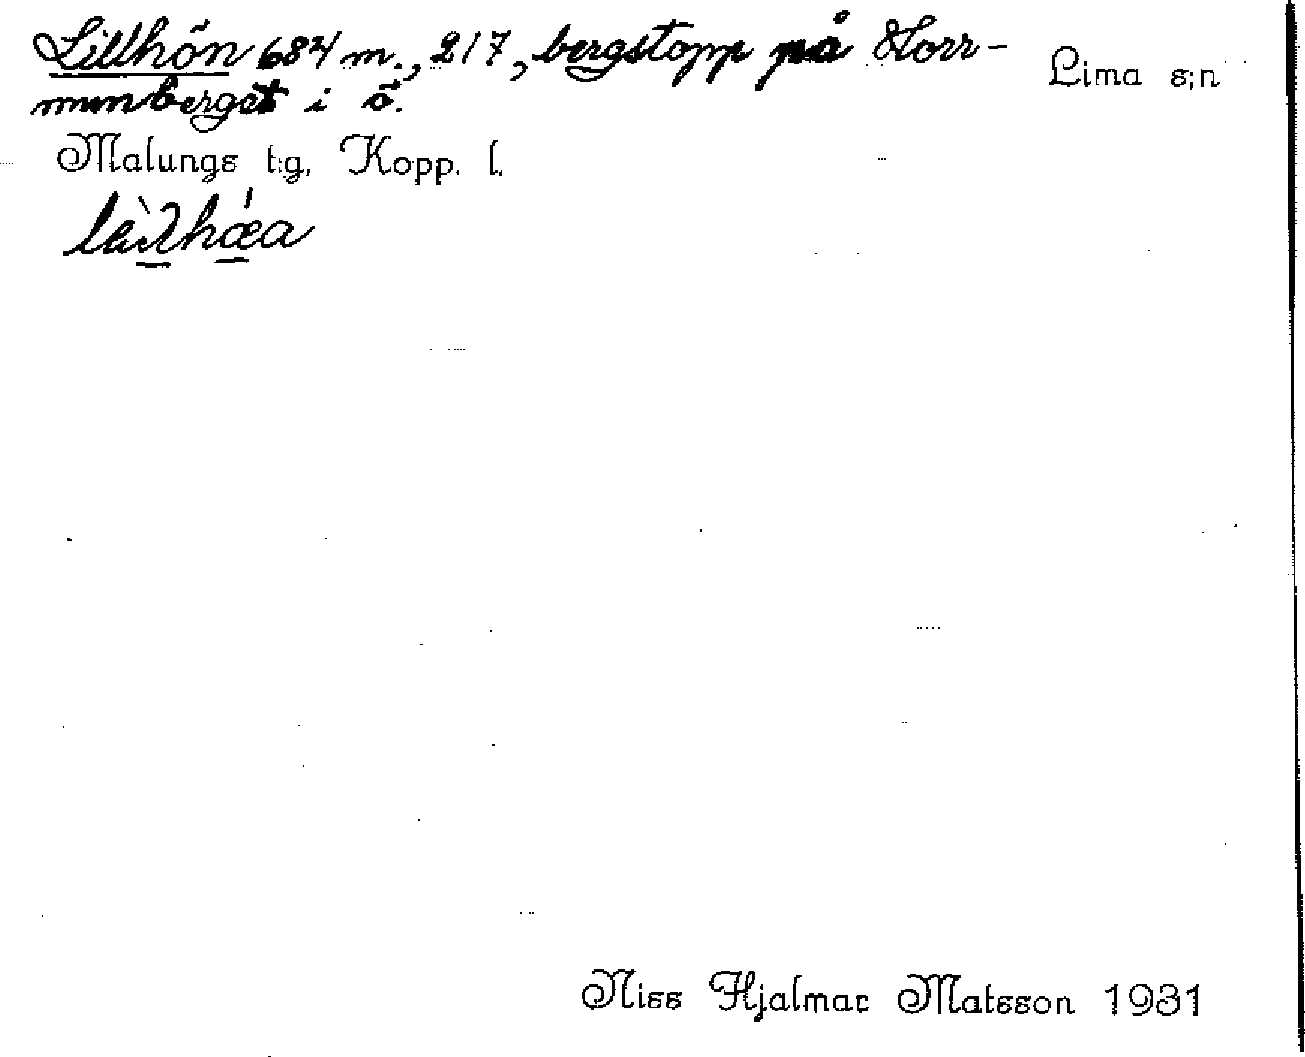 Lillhön 684 m., 217, bergstopp på Horr-
mumberget i ö.
Lima s;n
Malungs t:g, Kopp. l.
Niss Hjalmar Matsson 1931